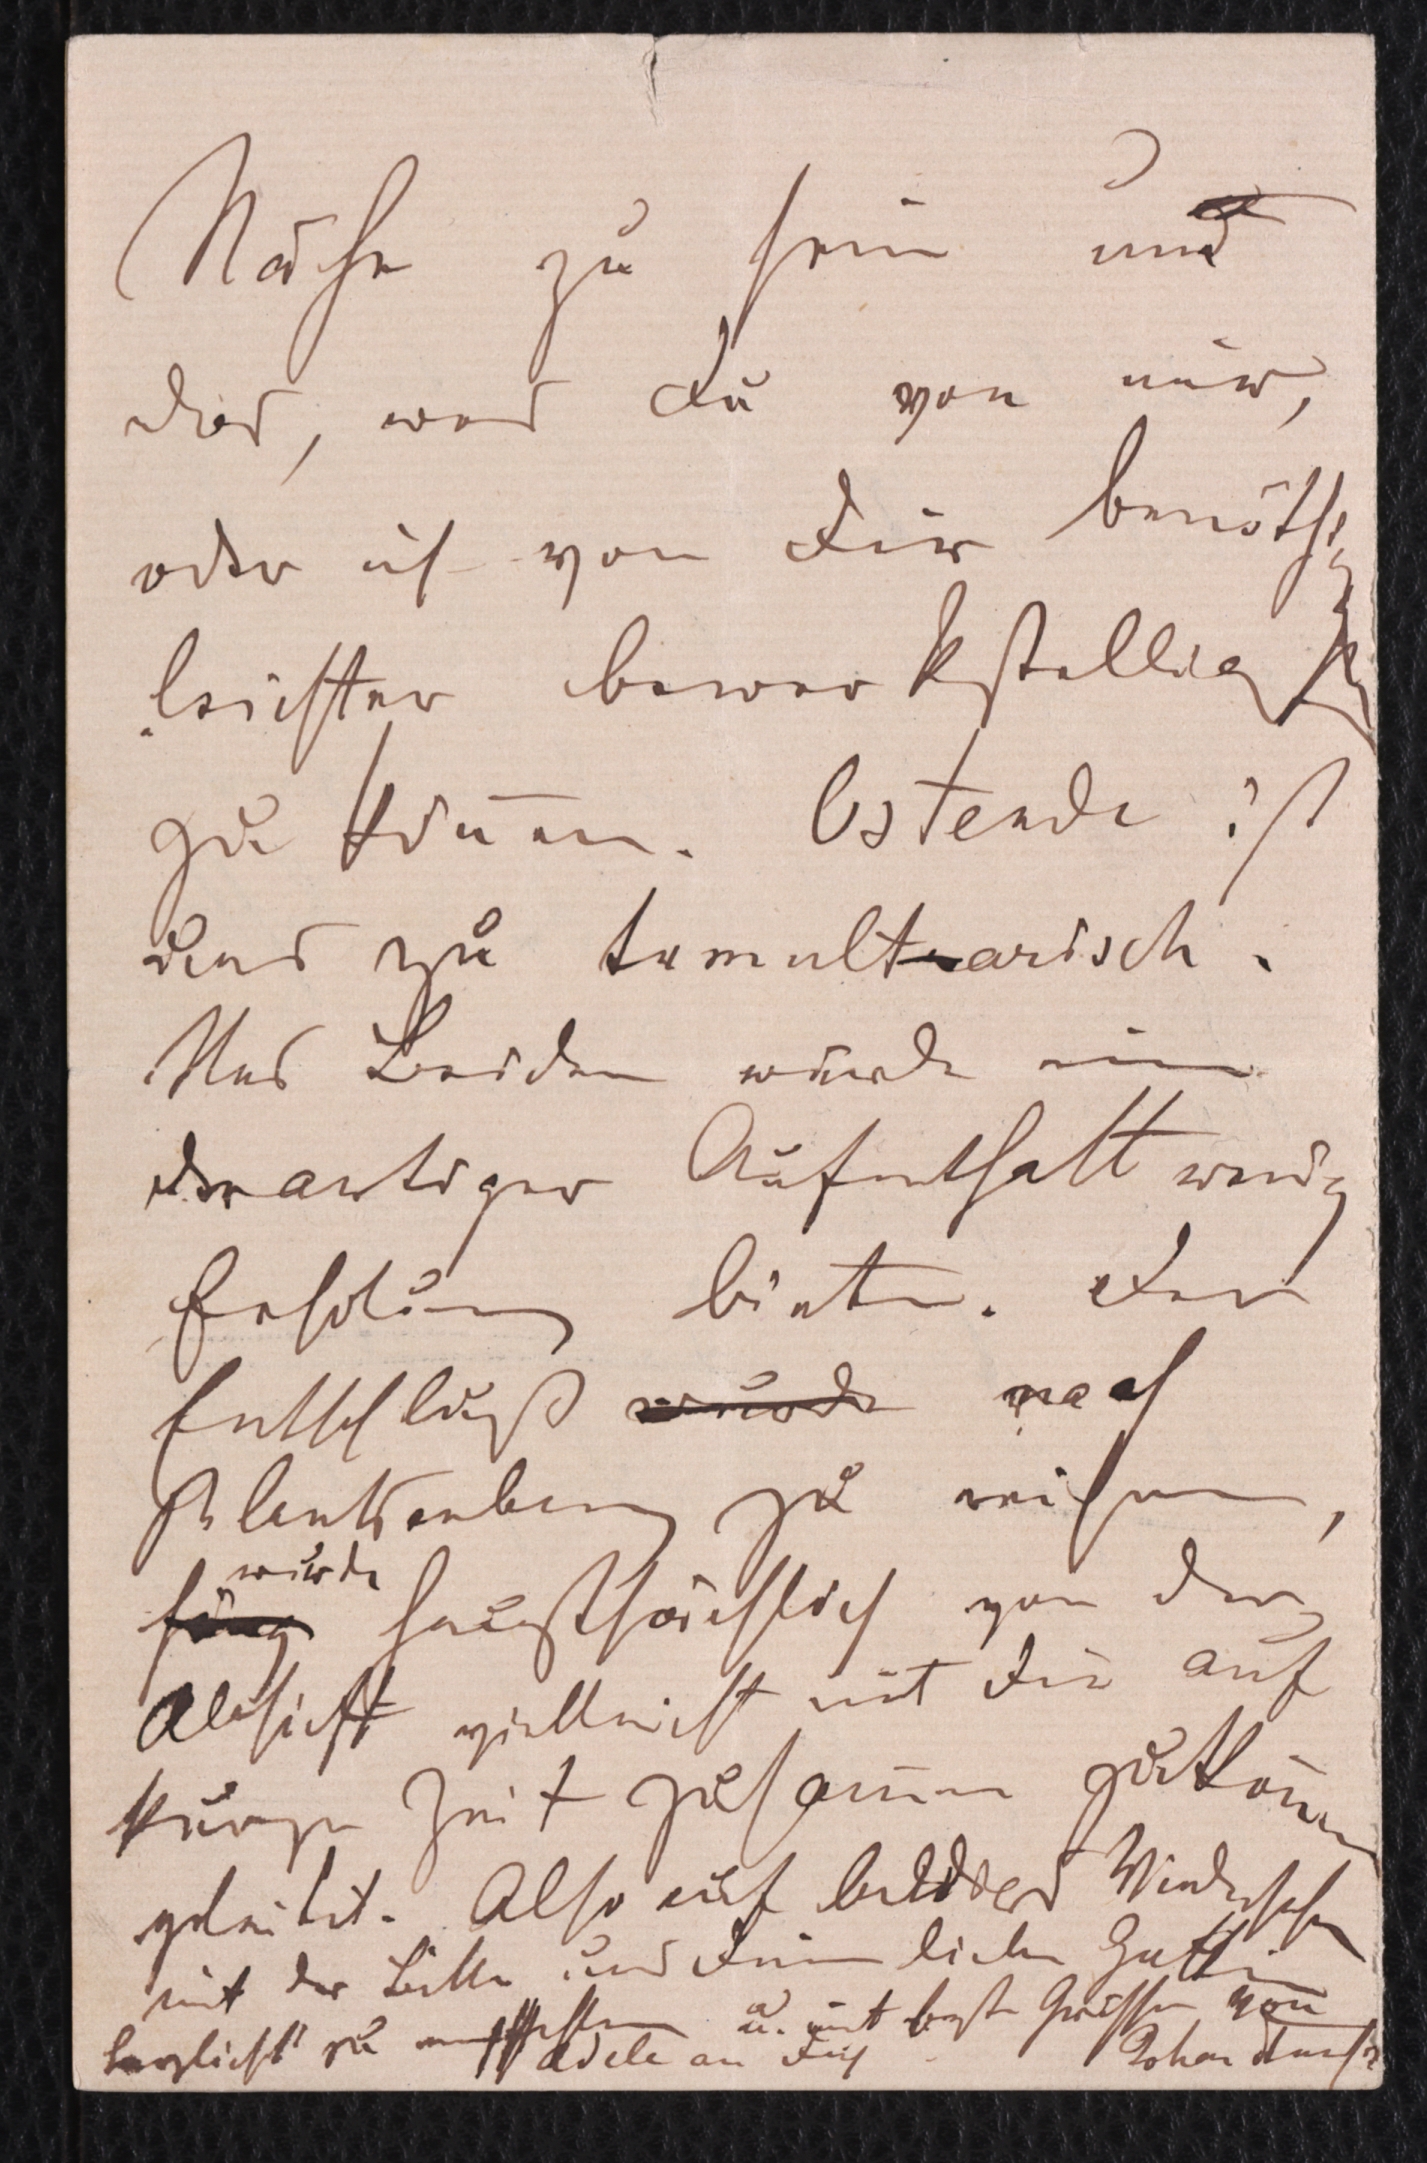 Nähe zu sein und
dies, was Du von mir,
oder ich von Dir benöthig
leichter bewerkstelligen
zu kön̄en. Ostende ist
uns zu tumultuarisch.
Uns Beiden würde ein
derartiger Aufenthalt wenig
Erholung bieten. Der
Entschluß wurde nach
Blankenberg zu reisen,
wurde
hauptsächlich von der
Absicht vielleicht mit Dir auf
kurze Zeit zusam̄en zu kom̄en
geleitet. Also auf baldiges Wiedersehen
mit der Bitte uns Deiner lieben Gattin
herzlichst zu empfehlen u. mit besten Grüßen von
Adele an Dich Johann Strauss